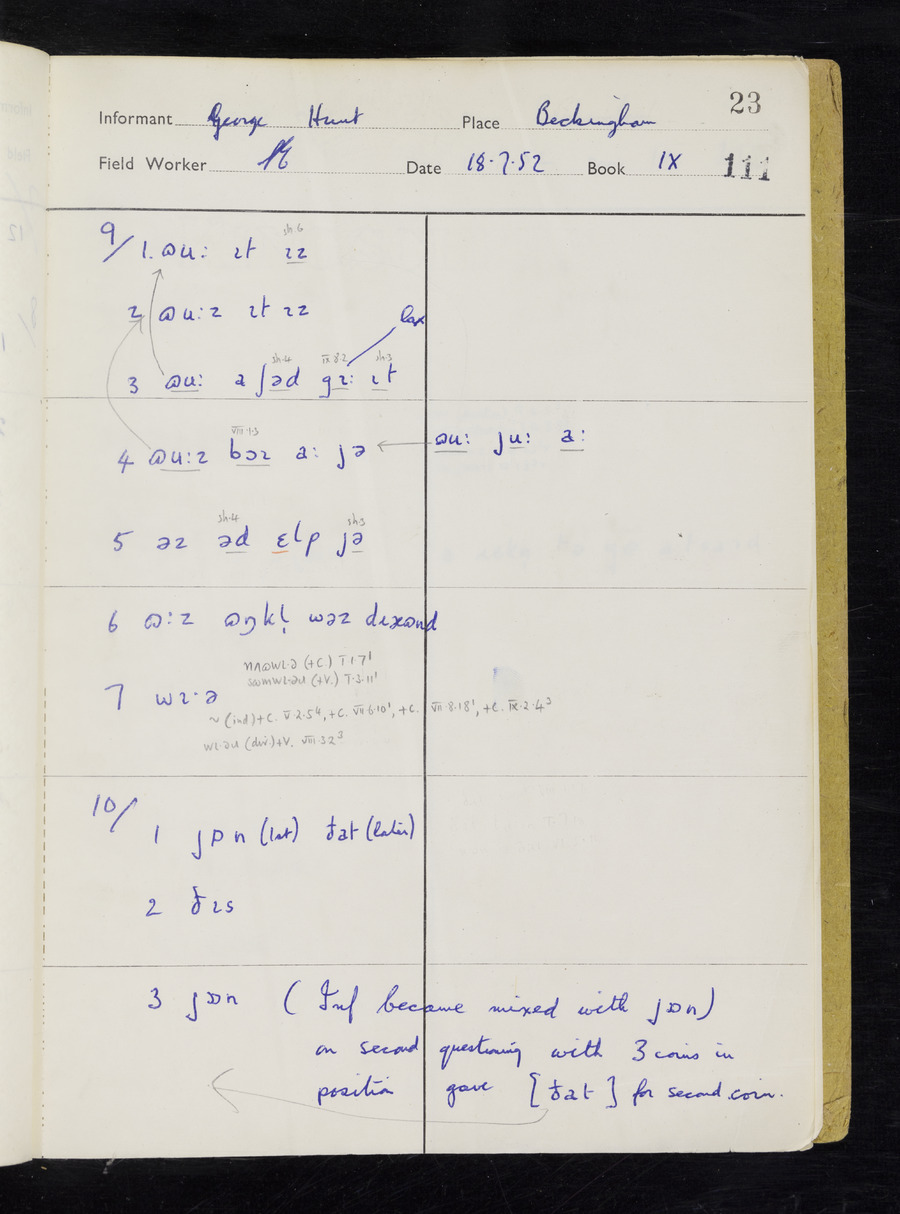 23
Informant George Hunt Place Beckingham
Field Worker Date 18·7·52 Book IX 111
sh·6
9/ 1. ɷu: ɪt ɪz
2 ɷu:z ɪt ɪz
lax
sh·4 IX·8·2 sh·3
3 ɷu: a ʃəd gɪ: ɪt
VIII·1·3
4 ɷu:z bəɪ a: jə ← ɷu: ju: a:
sh·4 sh·3
5 əz əd ɛlp jə
6 ɷ:z ɷŋkl̩ wəz
nʌɷwɪ·ə (+C.) I·7·1
sɷmwɪ·əɹ (+V.) I·3·11
7 wɪ·ə
~ (ind)+C. V·2·5⁴, +C. VII·6·10¹, +C. VII·8·18¹, +C. IX·2·4³
wɪ·əɹ (div.)+V. VIII·3·2³
10/
1 jɒn (1st) ðat (later)
2 ðɪs
3 jɒn (Inf became mixed with jɒn)
on second questioning with 3 coins in
position gave [ðat] for second coin.